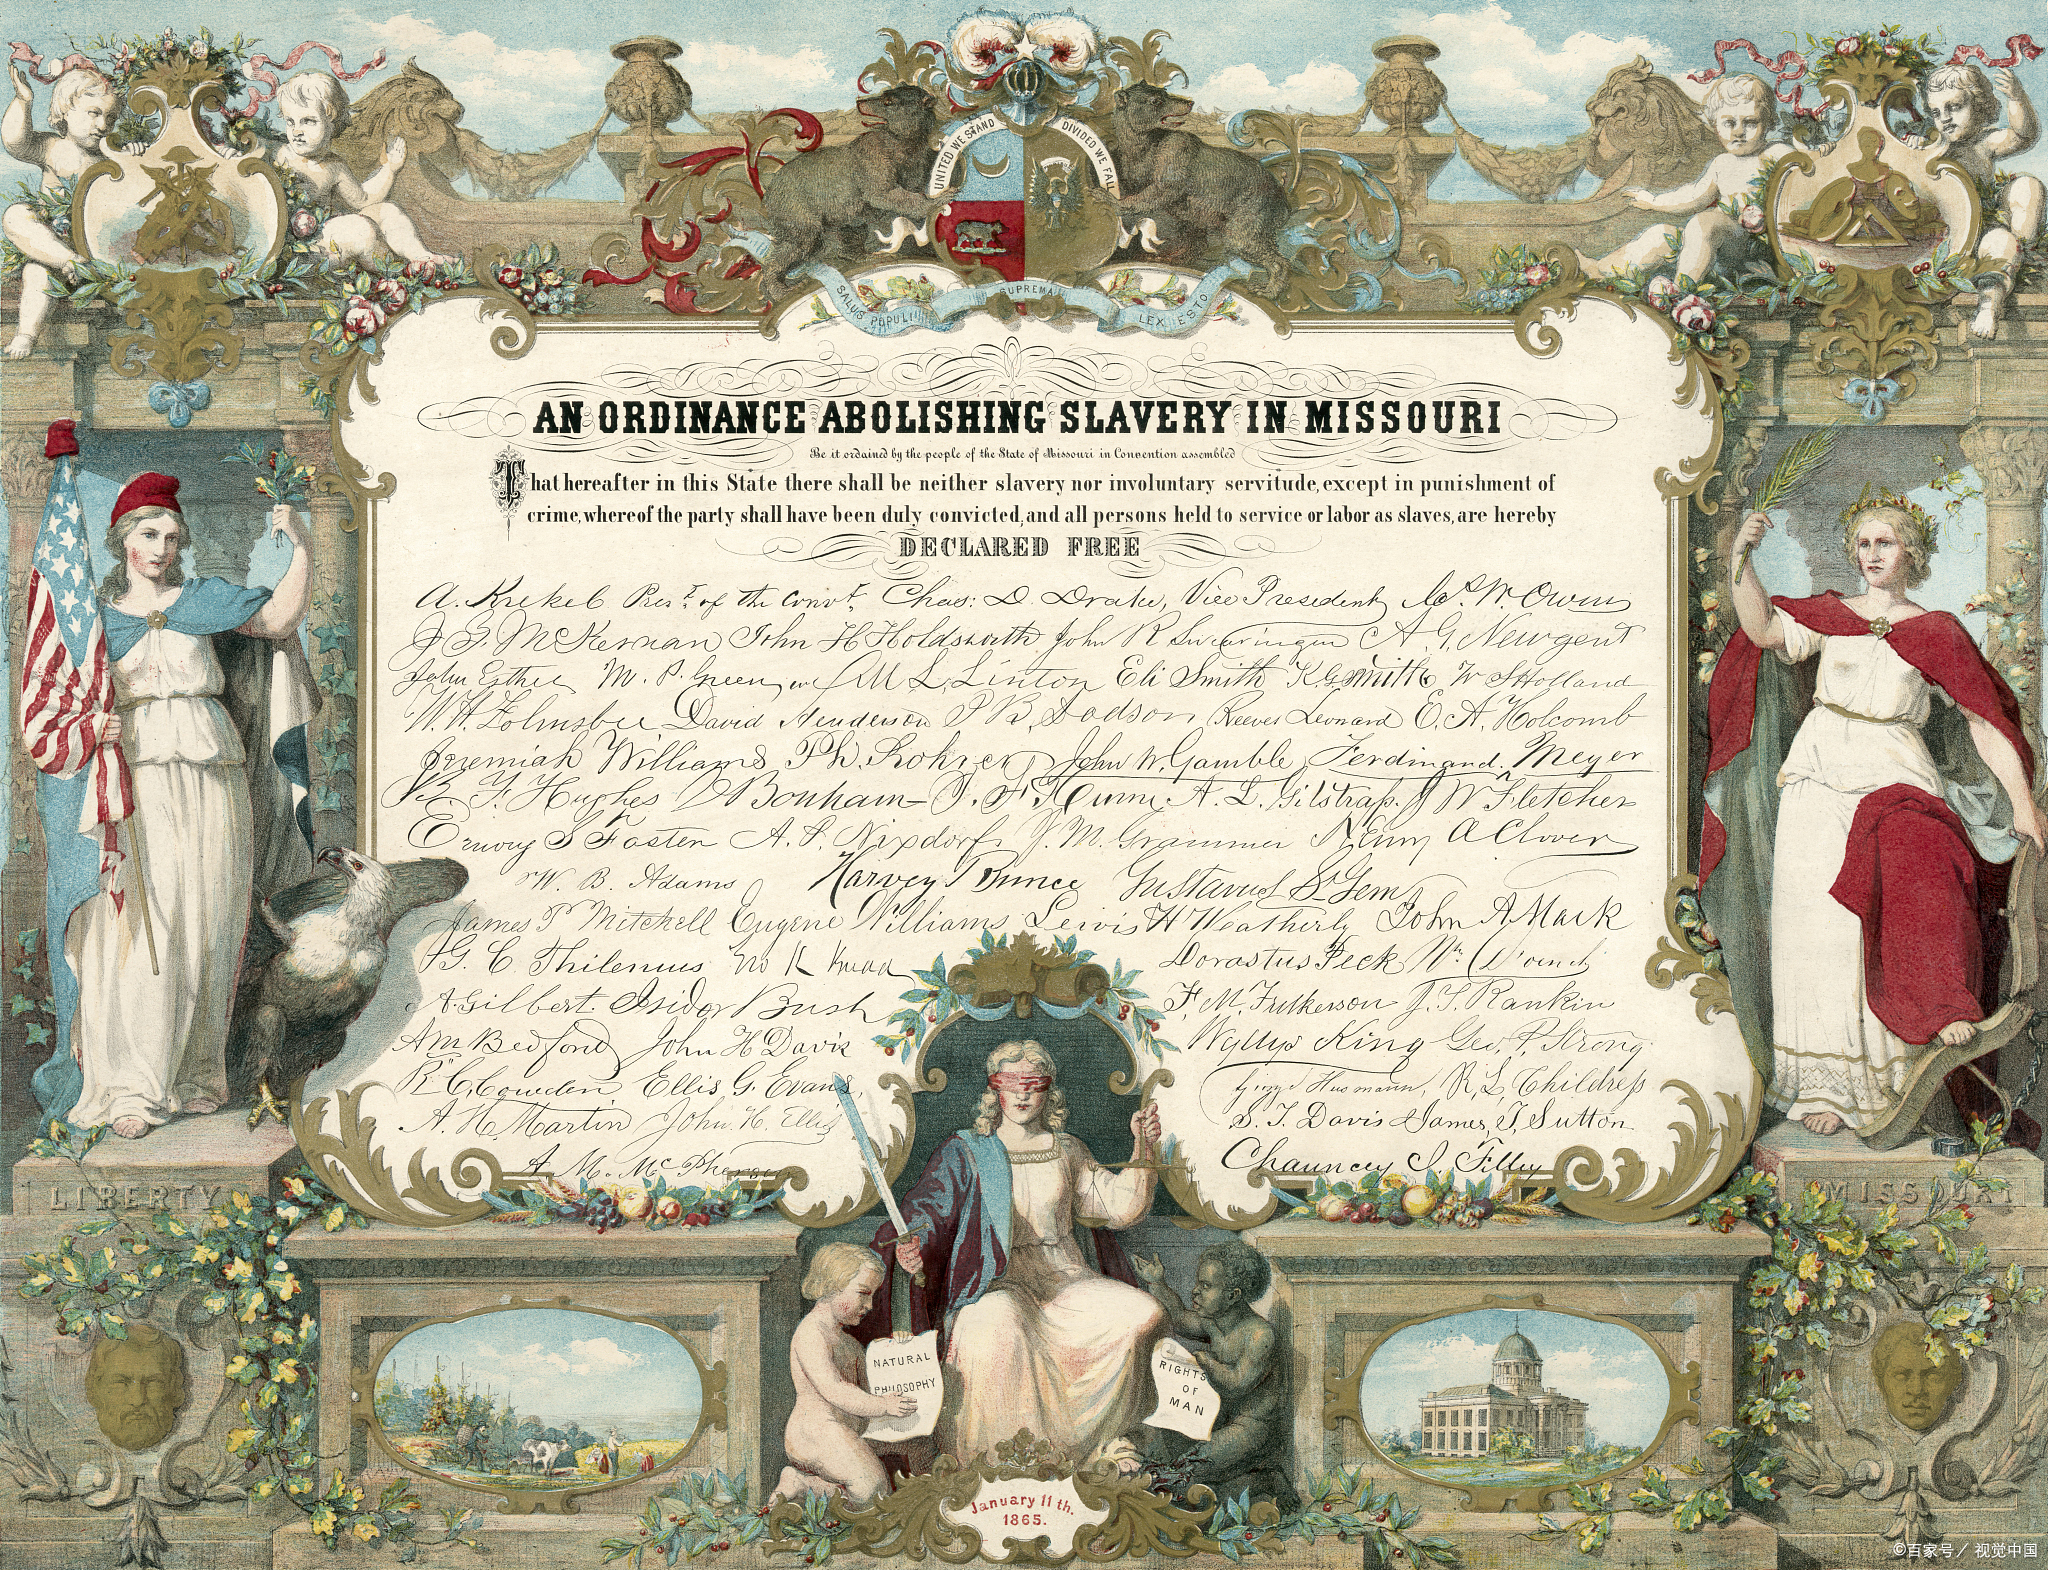 UNITED WE STAND
DIVIDED WE FALL
SALUS POPULI
SUPREMA
LEX ESTO
AN ORDINANCE ABOLISHING SLAVERY IN MISSOURI
Be it ordained by the people of the State of Missouri in Convention assembled
That hereafter in this State there shall be neither slavery nor involuntary servitude, except in punishment of
crime, whereof the party shall have been duly convicted, and all persons held to service or labor as slaves, are hereby
DECLARED FREE
A. Krekel Pres.t of the Convt. Chas: D. Drake, Vice President W. Owens
McKernan John H Holdsworth John R Swearingen A. G. Newgent
John Esther M. P. Green M. L. Linton Eli Smith K G Smith W S Holland
W. H. Folmsbee David Henderson P B. Dodson Reeves Leonard E. A. Holcomb
Jeremiah Williams Ph. Rohrer John W. Gamble Ferdinand Meyer
B. F. Hughes D Bonham J. F. Hume A. L. Gilstrap. J W Fletcher
Emory S Foster A. P. Nixdorf J. M. Grammer Henry A Clover
W. B. Adams Harvey Bunce Gustavus St Gem
James P Mitchell Eugene Williams Lewis H Weatherly John A Mack
G. C. Thilenius Dorastus Peck
A Gilbert. Isidor Bush F. M. Fulkerson J. T. Rankin
A M Bedford John H Davis Wyllys King Geo. P. Strong
R. C. Cowden Ellis G. Evans, Husmann, R. L. Childress
A. H. Martin John H. Ellis S. T. Davis James T. Sutton
A. M. McPherson Chauncey I. Filley
LIBERTY
MISSOURI
NATURAL
PHILOSOPHY
RIGHTS
OF
MAN
January 11th.
1865.
©百家号／视觉中国